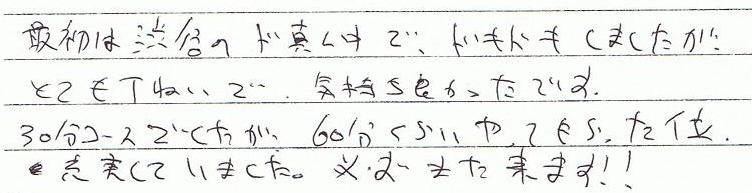 最初は渋谷のド真ん中で、ドキドキしましたが、
とても丁ねいで、気持ち良かったです。
30分コースでしたが、60分くらいやってもらった位、
充実していました。必ずまた来ます!!